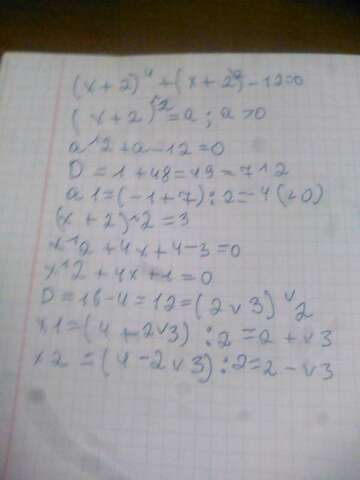 (x+2)^4 + (x+2)^2 - 12=0
(x+2)^2=a; a>0
a^2+a-12=0
D=1+48=49=7^2
a1=(-1+7):2=-4(<0)
(x+2)^2=3
x^2+4x+4-3=0
x^2+4x+1=0
D=16-4=12=(2v3)^2
x1=(4+2v3):2=2+v3
x2=(4-2v3):2=2-v3